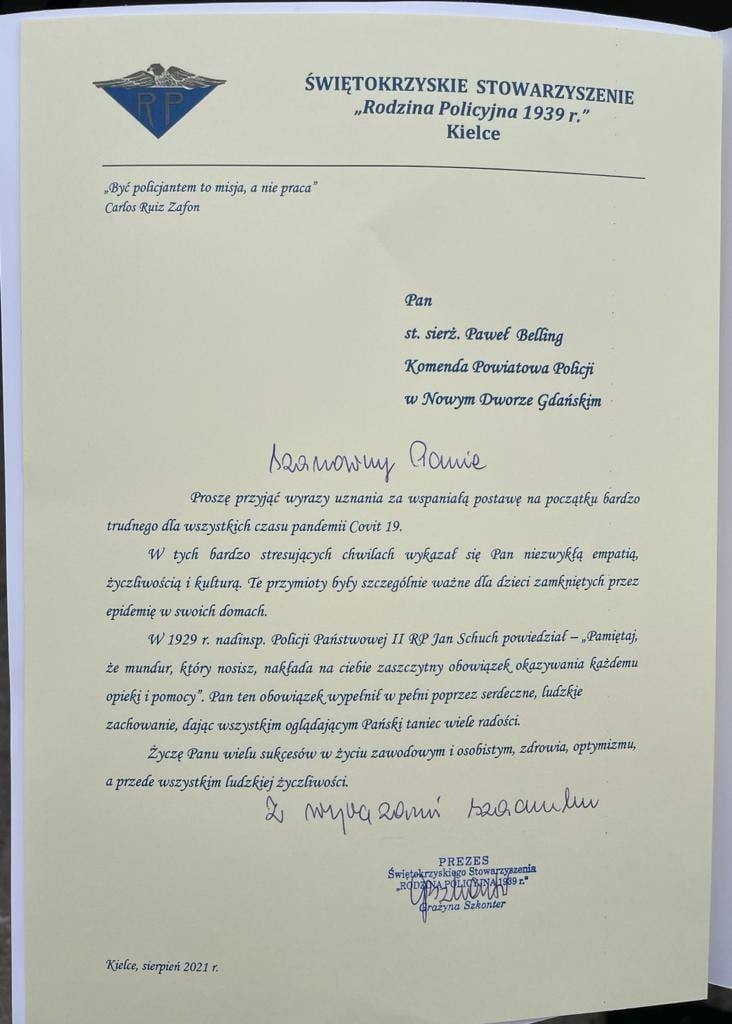 RP
ŚWIĘTOKRZYSKIE STOWARZYSZENIE
„Rodzina Policyjna 1939 r."
Kielce
„Być policjantem to misja, a nie praca"
Carlos Ruiz Zafon
Pan
st. sierż. Paweł Belling
Komenda Powiatowa Policji
w Nowym Dworze Gdańskim
Szanowny Panie
Proszę przyjąć wyrazy uznania za wspaniałą postawę na początku bardzo
trudnego dla wszystkich czasu pandemii Covit 19.
W tych bardzo stresujących chwilach wykazał się Pan niezwykłą empatią,
życzliwością i kulturą. Te przymioty były szczególnie ważne dla dzieci zamkniętych przez
epidemię w swoich domach.
W 1929 r. nadinsp. Policji Państwowej II RP Jan Schuch powiedział – „Pamiętaj,
że mundur, który nosisz, nakłada na ciebie zaszczytny obowiązek okazywania każdemu
opieki i pomocy". Pan ten obowiązek wypełnił w pełni poprzez serdeczne, ludzkie
zachowanie, dając wszystkim oglądającym Pański taniec wiele radości.
Życzę Panu wielu sukcesów w życiu zawodowym i osobistym, zdrowia, optymizmu,
a przede wszystkim ludzkiej życzliwości.
Z wyrazami szacunku
PREZES
Świętokrzyskiego Stowarzyszenia
„RODZINA POLICYJNA 1939 r."
Grażyna Szkonter
Kielce, sierpień 2021 r.